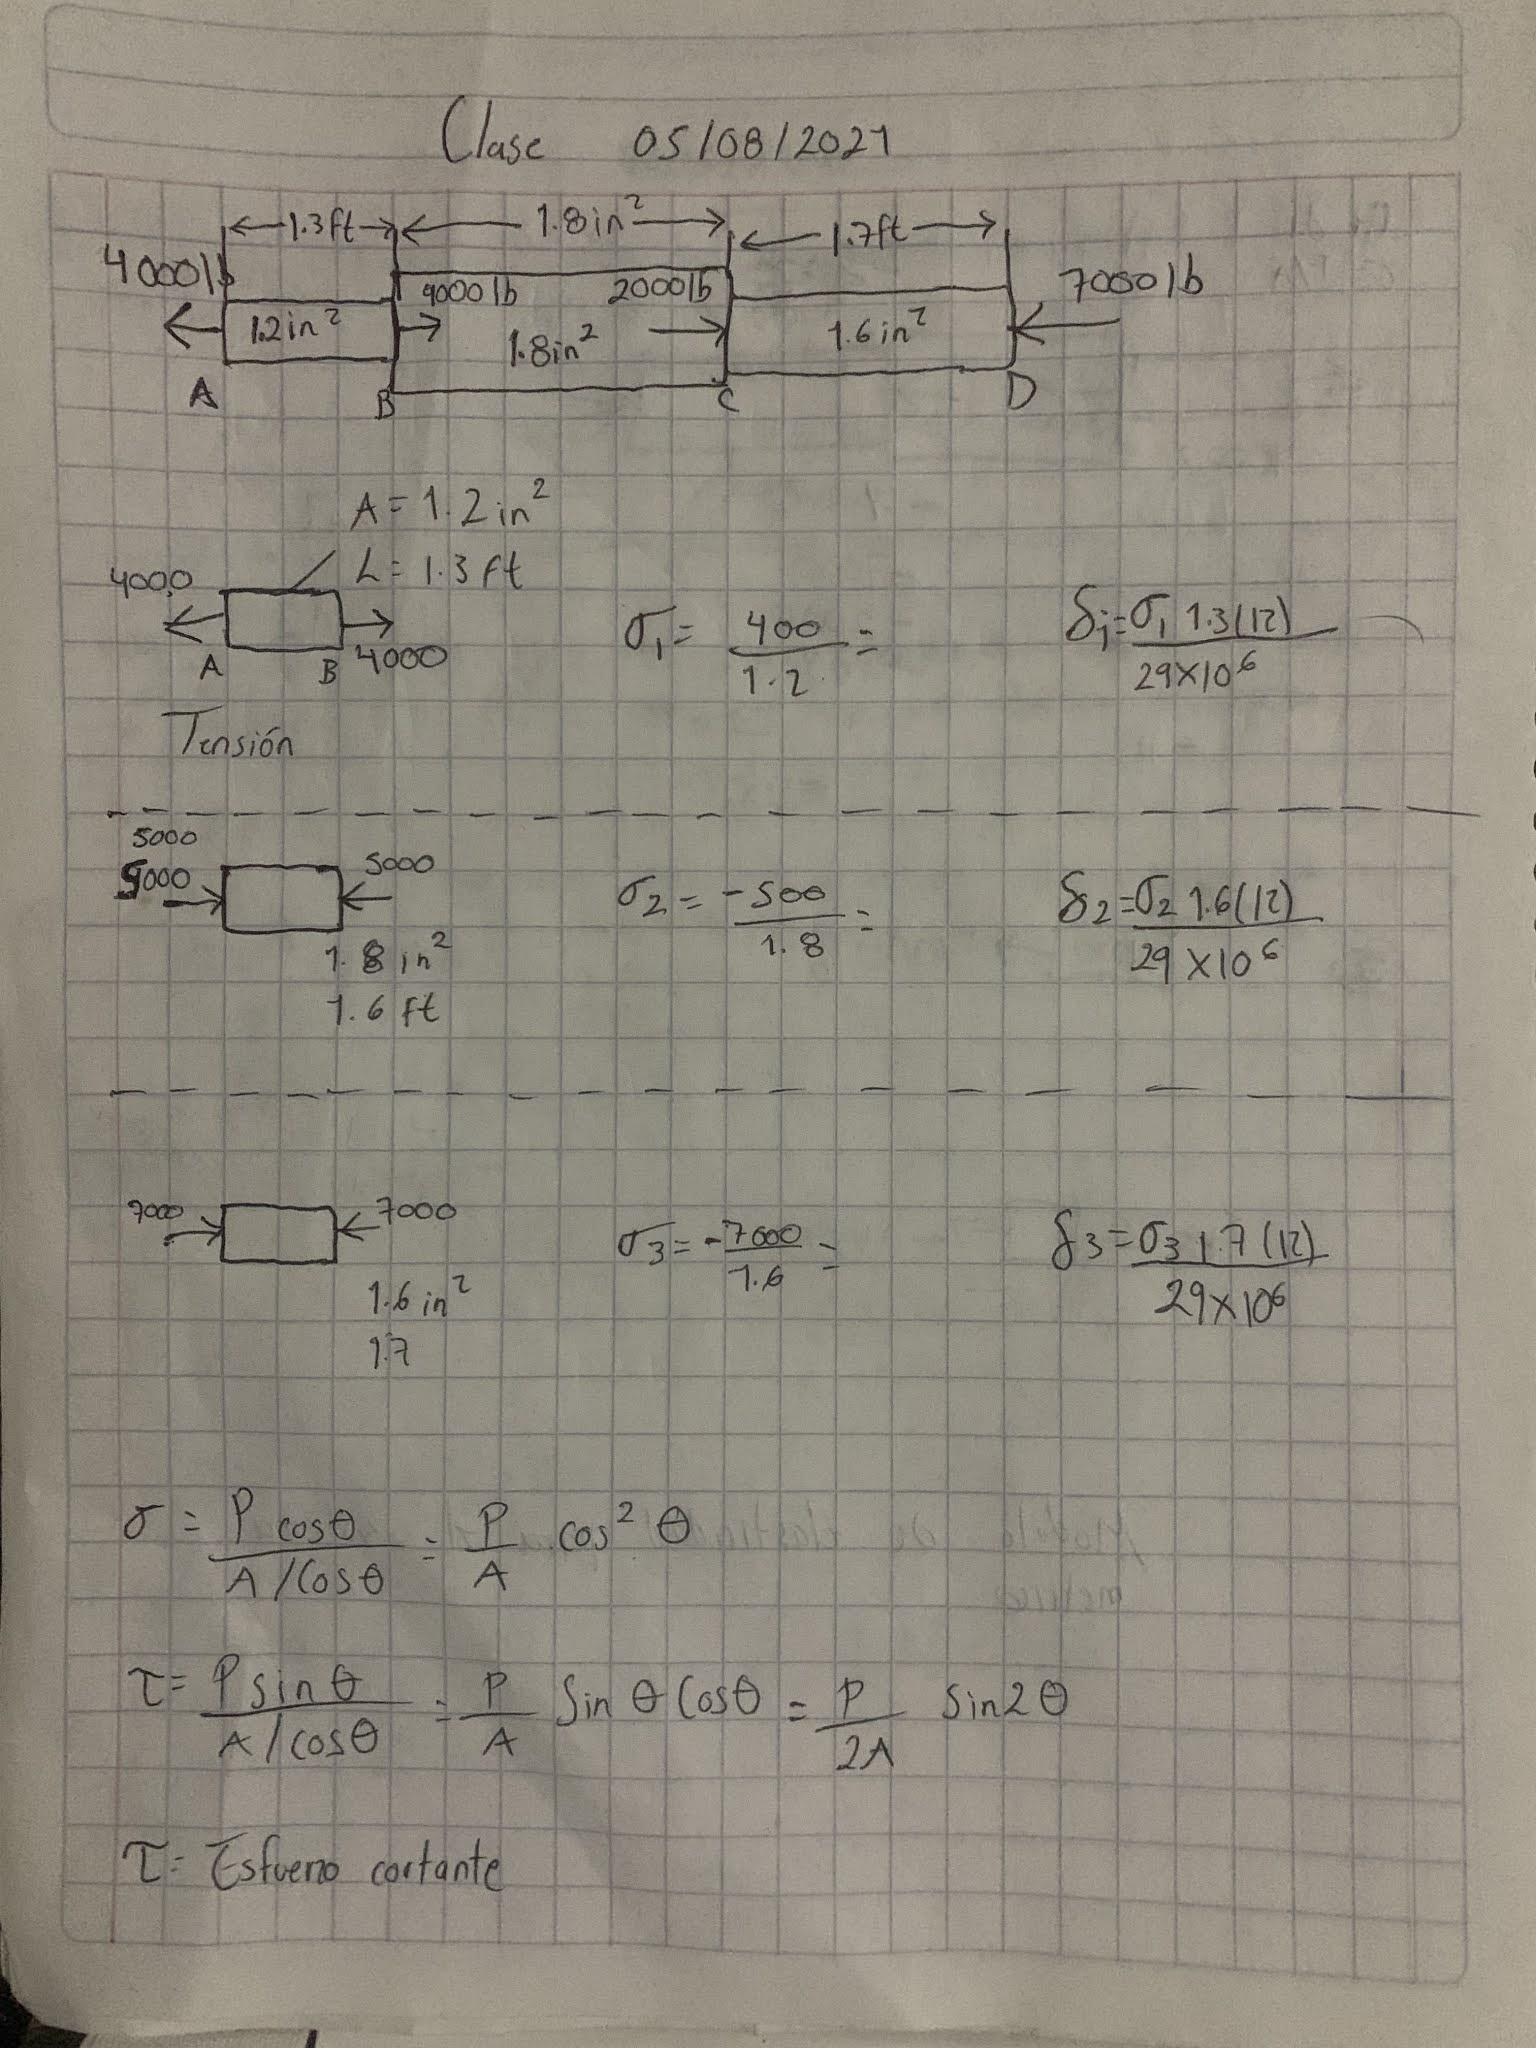 Clase 05/08/2021
1.3ft 1.8in² 1.7ft
4000lb 9000lb 2000lb 7000lb
1.2in² 1.8in² 1.6in²
A B C D
A = 1.2in²
L = 1.3ft
4000 A B 4000
σ₁ = 400/1.2 =
δ₁ = σ₁ 1.3(12)/29×10⁶
Tensión
5000
9000 5000
σ₂ = -500/1.8 =
δ₂ = σ₂ 1.6(12)/29×10⁶
1.8in²
1.6ft
7000 7000
σ₃ = -7000/1.6 =
δ₃ = σ₃ 1.7(12)/29×10⁶
1.6in²
1.7
σ = P cosθ/A/cosθ = P/A cos²θ
τ = P sinθ/A/cosθ = P/A Sinθ Cosθ = P/2A sin2θ
τ = Esfuerzo cortante